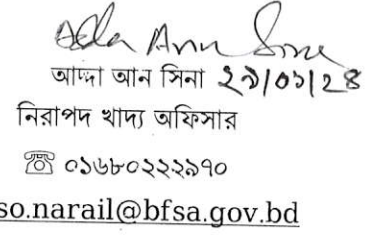 আদ্দা আন সিনা ২৯/০১/২৪
নিরাপদ খাদ্য অফিসার
☏ ০১৬৮০২২২৯৭০
so.narail@bfsa.gov.bd